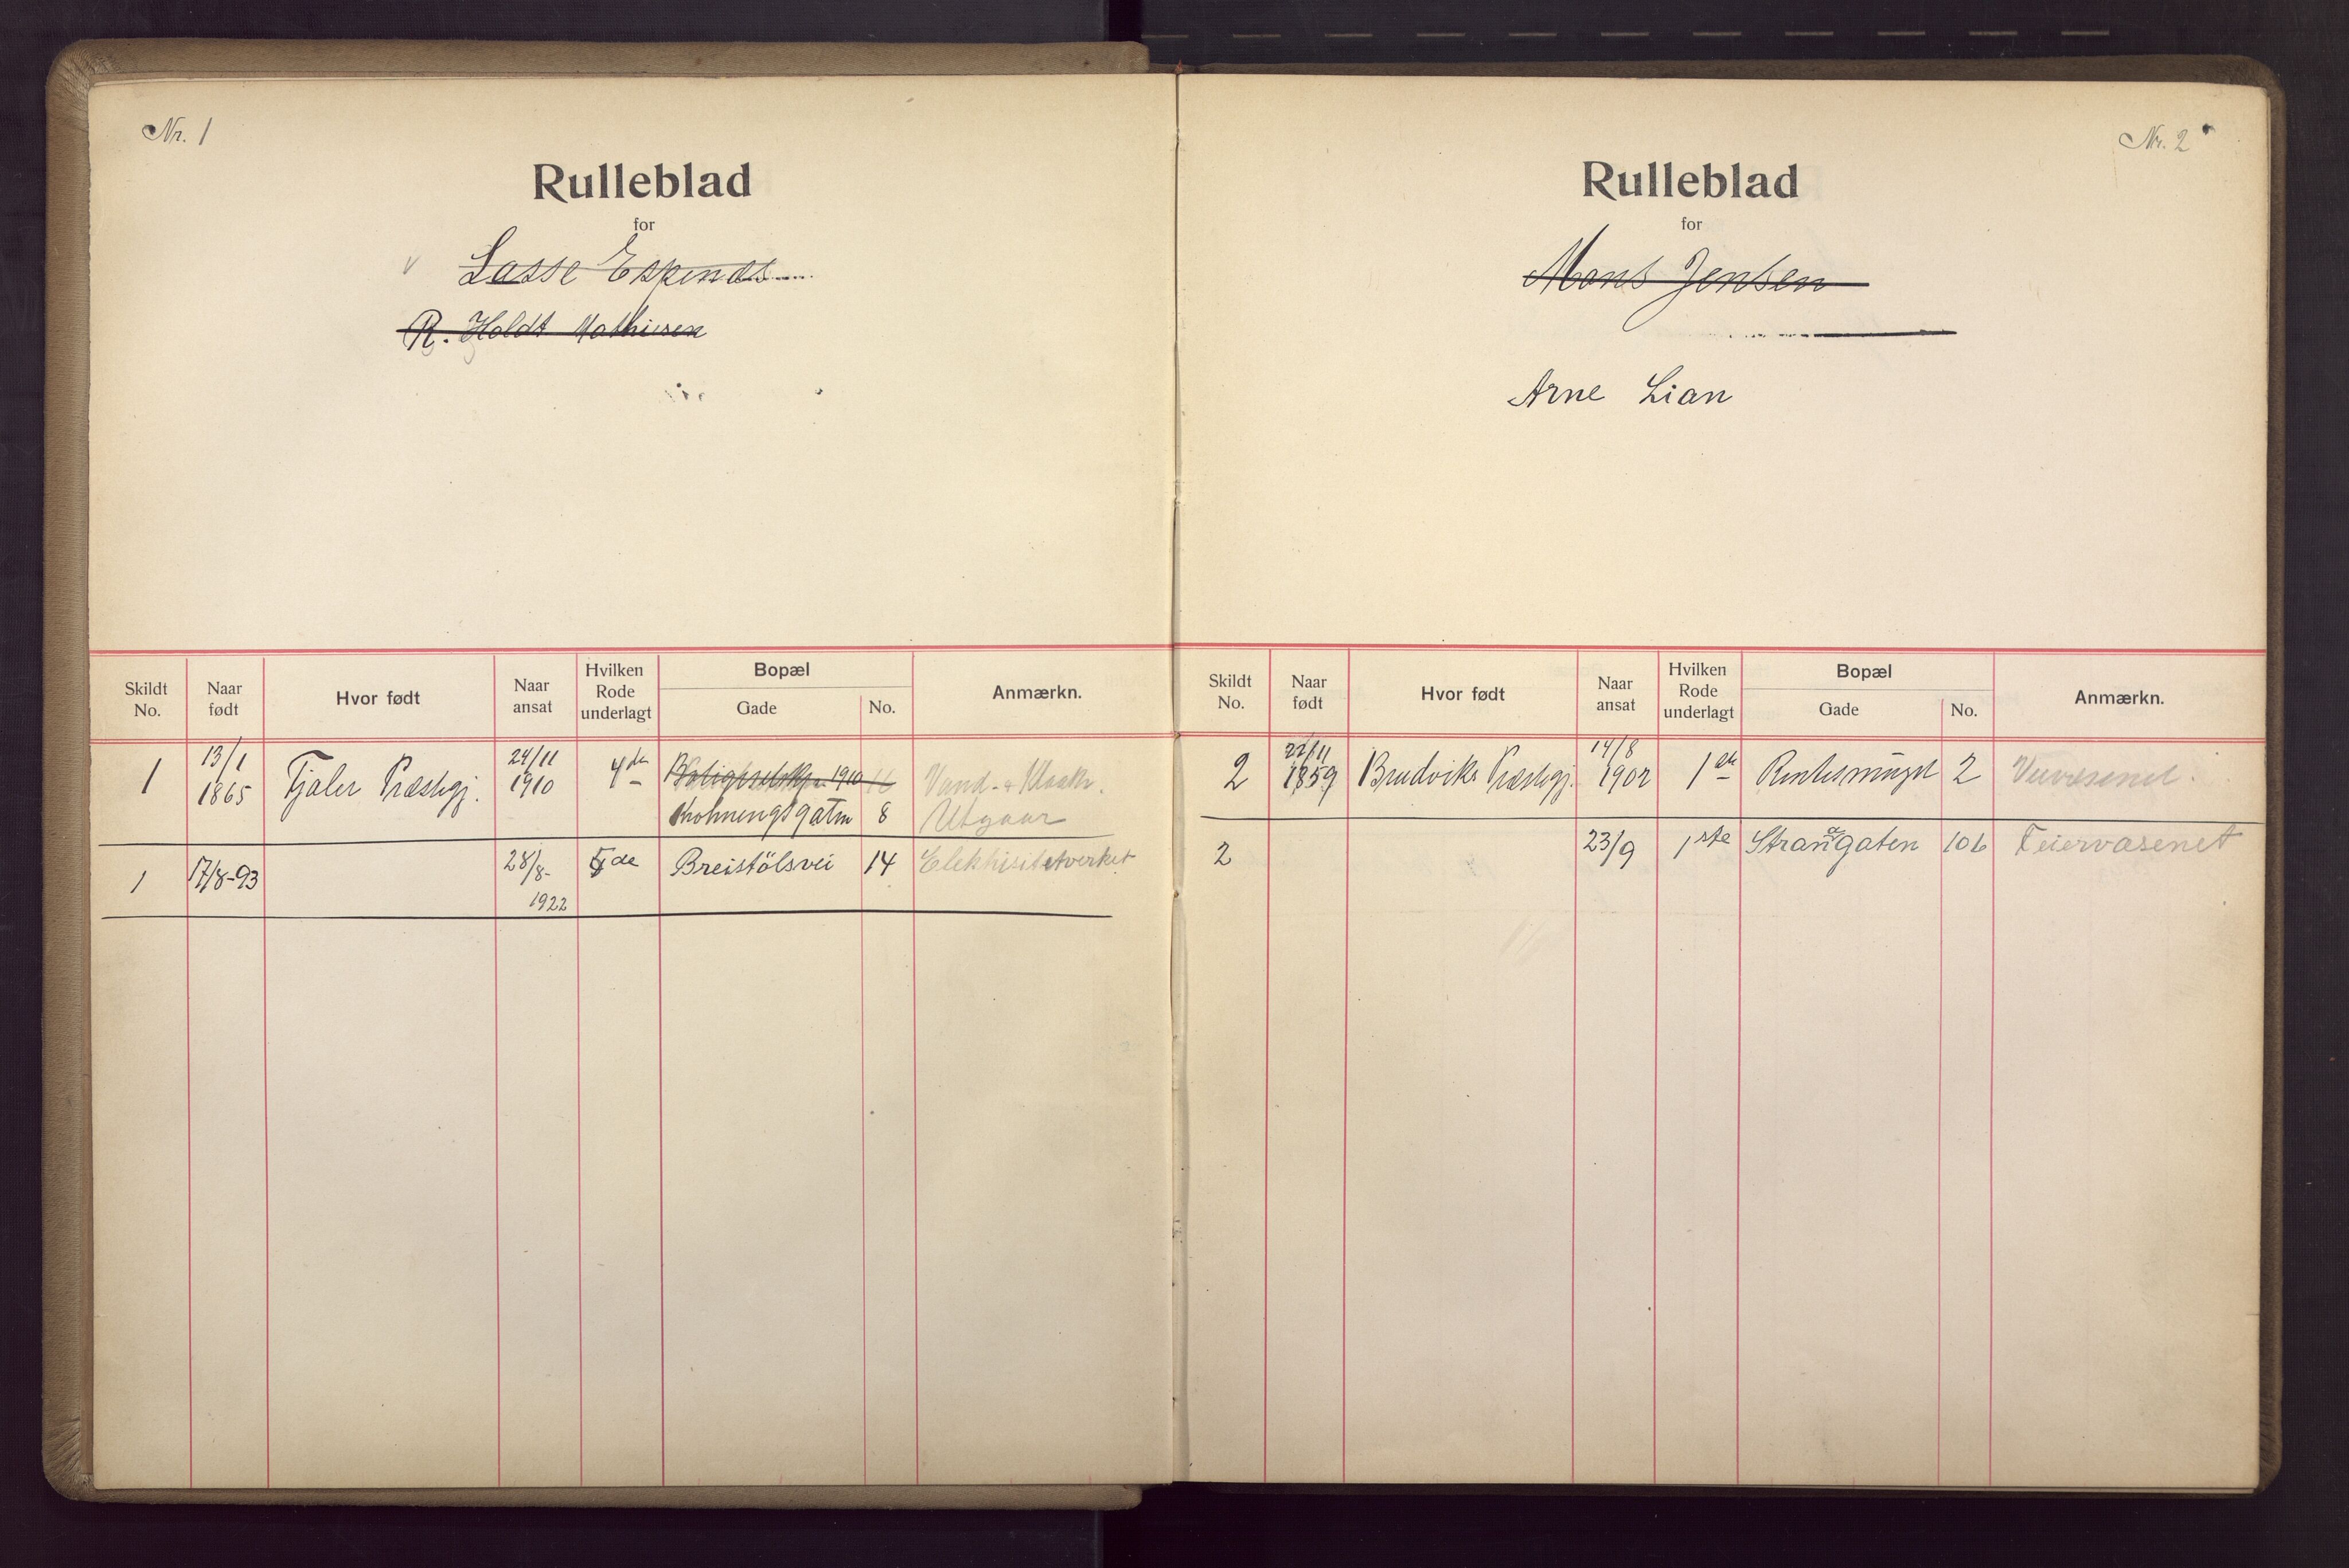 Nr. 1
Rulleblad
for
Lasse Espenes
R. Holdt Mathiesen
Skildt No.
Naar født
Hvor født
Naar ansat
Hvilken Rode underlagt
Bopæl
Gade
No.
Anmærkn.
1
13/1 1865
Fjaler Præstegj.
24/11 1910
4de
1910
8
Vand- & Kloakv.
Utgaar
1
17/8-93
28/8-1922
5de
Breistölsvei
14
Elektrisitetverket
Nr. 2
Rulleblad
for
Mons Jensen
Arne Lian
Skildt No.
Naar født
Hvor født
Naar ansat
Hvilken Rode underlagt
Bopæl
Gade
No.
Anmærkn.
2
22/11 1859
Brudviks Præstegj.
14/8 1902
1ste
2
Veivæsenet.
2
23/9
1ste
Strandgaten
106
Feiervæsenet